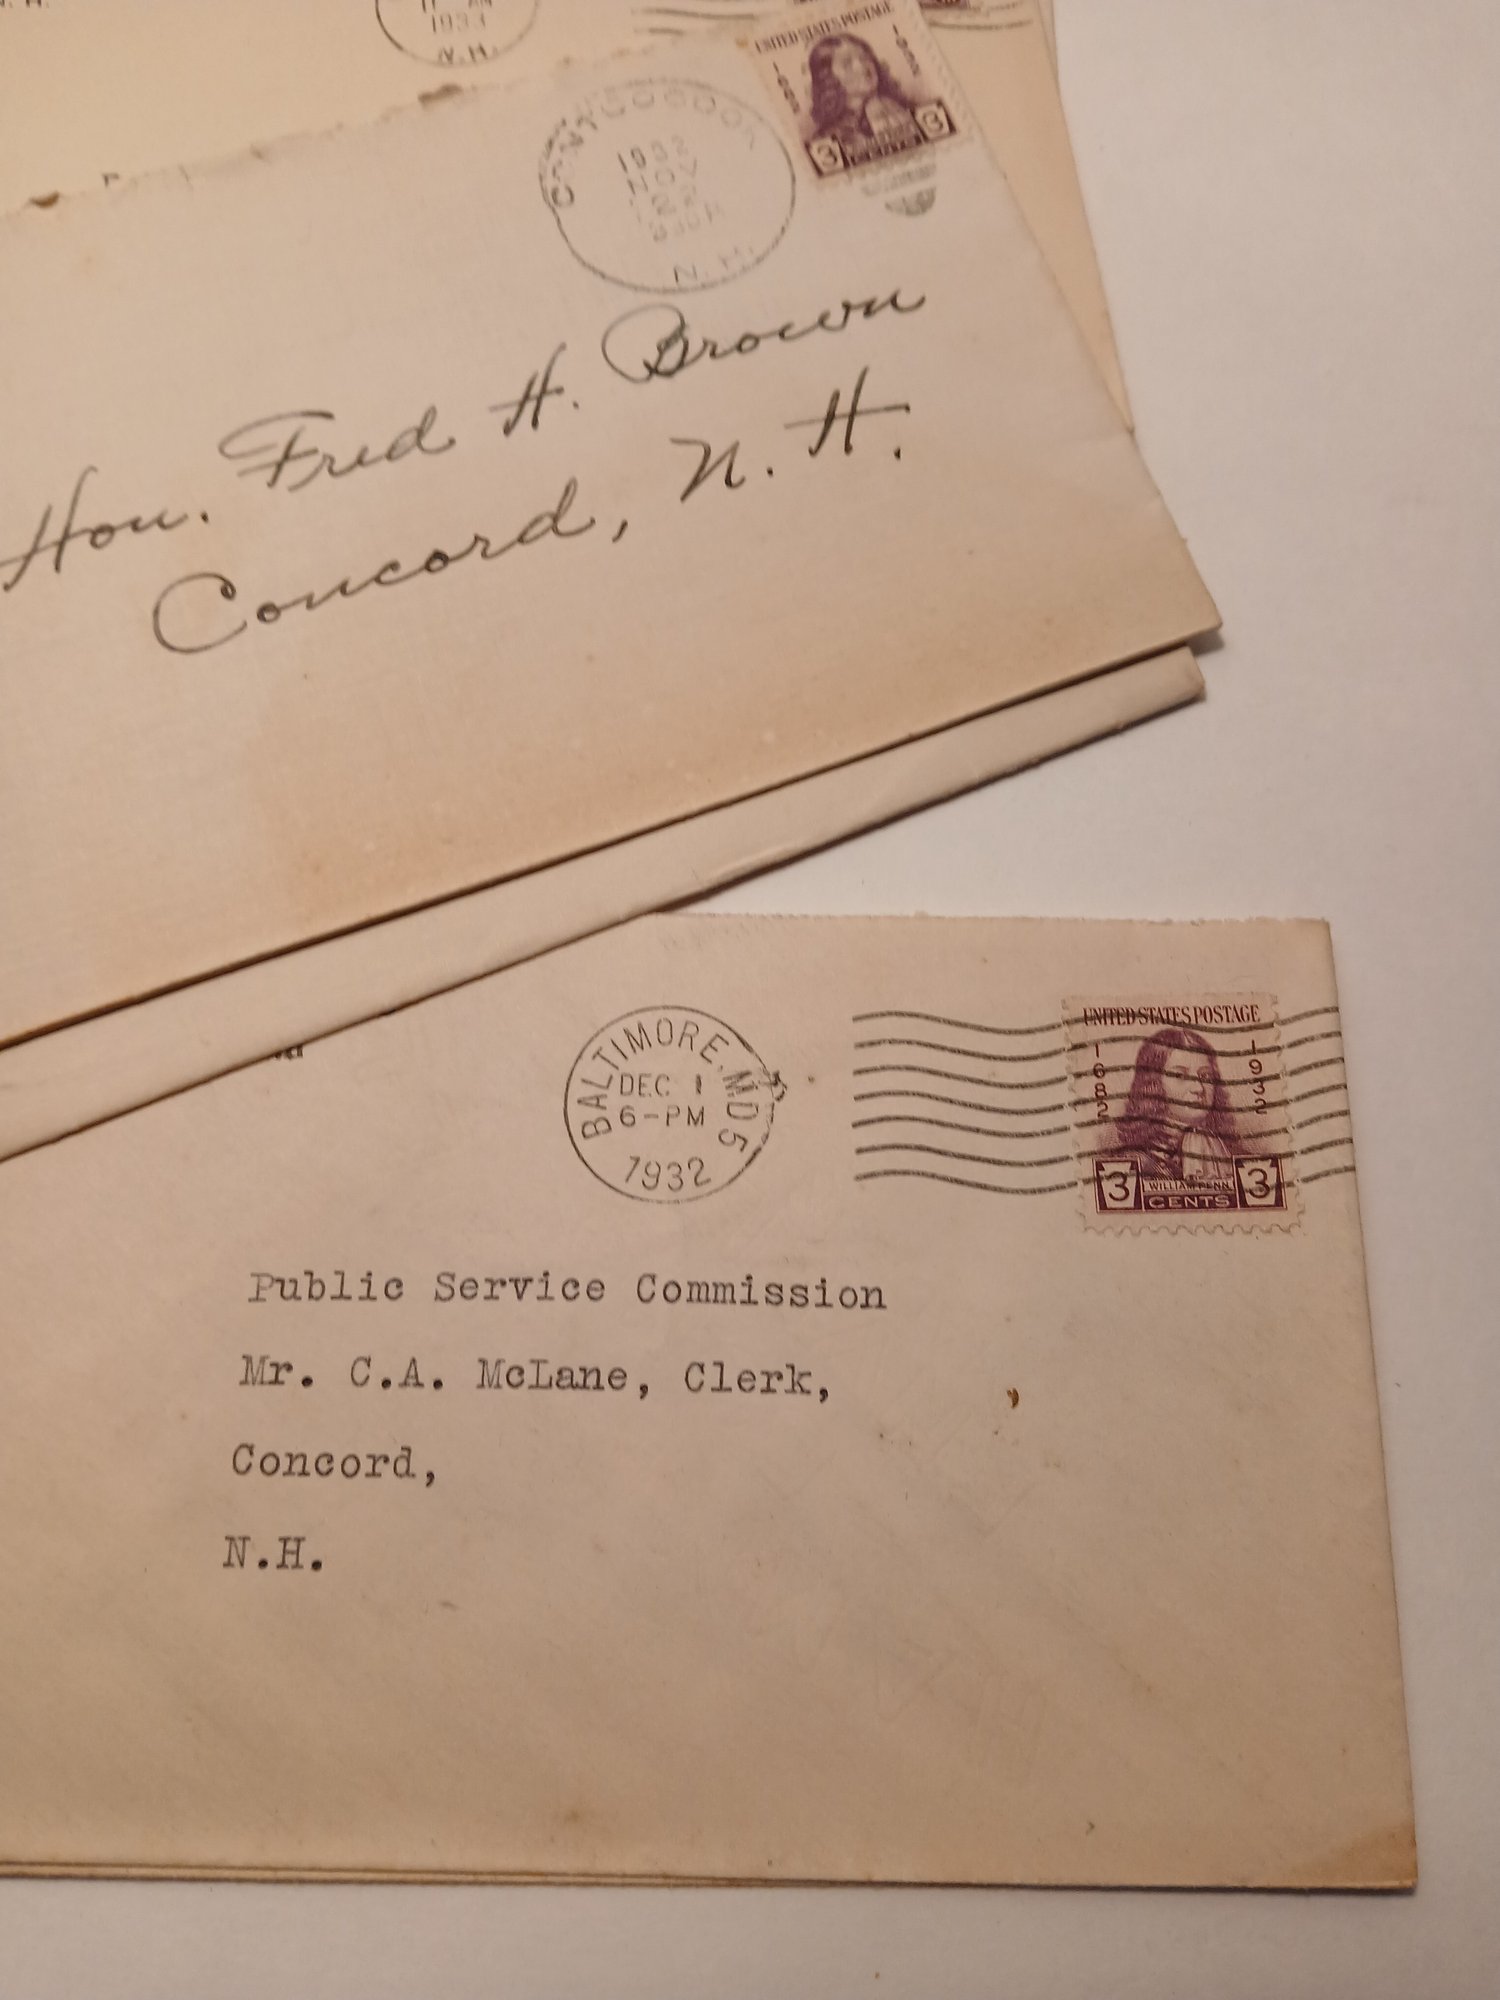 1933
N.H.
UNITED STATES POSTAGE
3 3
CENTS
CONTOOCOOK
N.H.
Hon. Fred H. Brown
Concord, N. H.
BALTIMORE, MD 5
DEC 1
6-PM
1932
UNITED STATES POSTAGE
1682 1932
3 WILLIAM PENN 3
CENTS
Public Service Commission
Mr. C.A. McLane, Clerk,
Concord,
N.H.